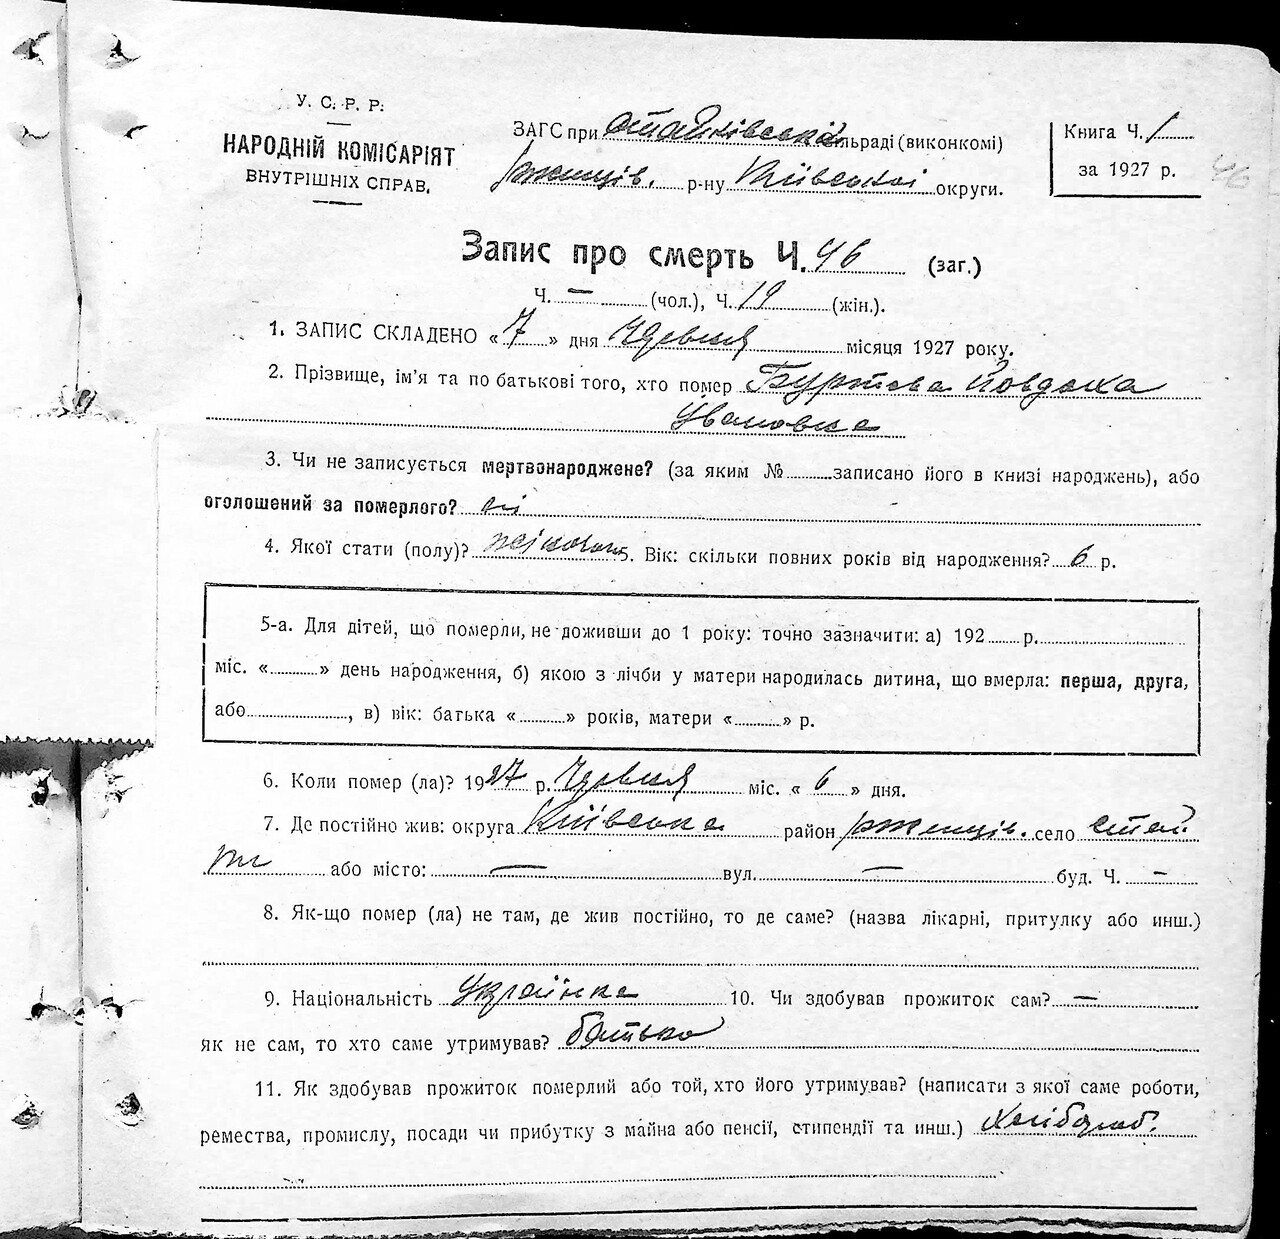 У. С. Р. Р.
НАРОДНІЙ КОМІСАРІЯТ
ВНУТРІШНІХ СПРАВ.
ЗАГС при Стайківській сільраді (виконкомі)
Ржищів. р-ну Київської округи.
Книга Ч. 1
за 1927 р.
46
Запис про смерть Ч. 46 (заг.)
Ч. — (чол.), Ч. 19 (жін.).
1. ЗАПИС СКЛАДЕНО « 7 » дня місяця 1927 року.
2. Прізвище, ім'я та по батькові того, хто помер Йовдоха
Ивановна
3. Чи не записується мертвонароджене? (за яким № записано його в книзі народжень), або
оголошений за померлого? ні
4. Якої стати (полу)? 5. Вік: скільки повних років від народження? 6 р.
5-а. Для дітей, що померли, не доживши до 1 року: точно зазначити: а) 192 р.
міс. « » день народження, б) якою з лічби у матери народилась дитина, що вмерла: перша, друга,
або , в) вік: батька « » років, матери « » р.
6. Коли помер (ла)? 1927 р. міс. « 6 » дня.
7. Де постійно жив: округа Київська район Ржищів. село Стай
ки або місто: — вул. — буд. Ч. —
8. Як-що помер (ла) не там, де жив постійно, то де саме? (назва лікарні, притулку або инш.)
9. Національність Українка 10. Чи здобував прожиток сам? —
як не сам, то хто саме утримував? батько
11. Як здобував прожиток померлий або той, хто його утримував? (написати з якої саме роботи,
ремества, промислу, посади чи прибутку з майна або пенсії, стипендії та инш.) Хліброб.